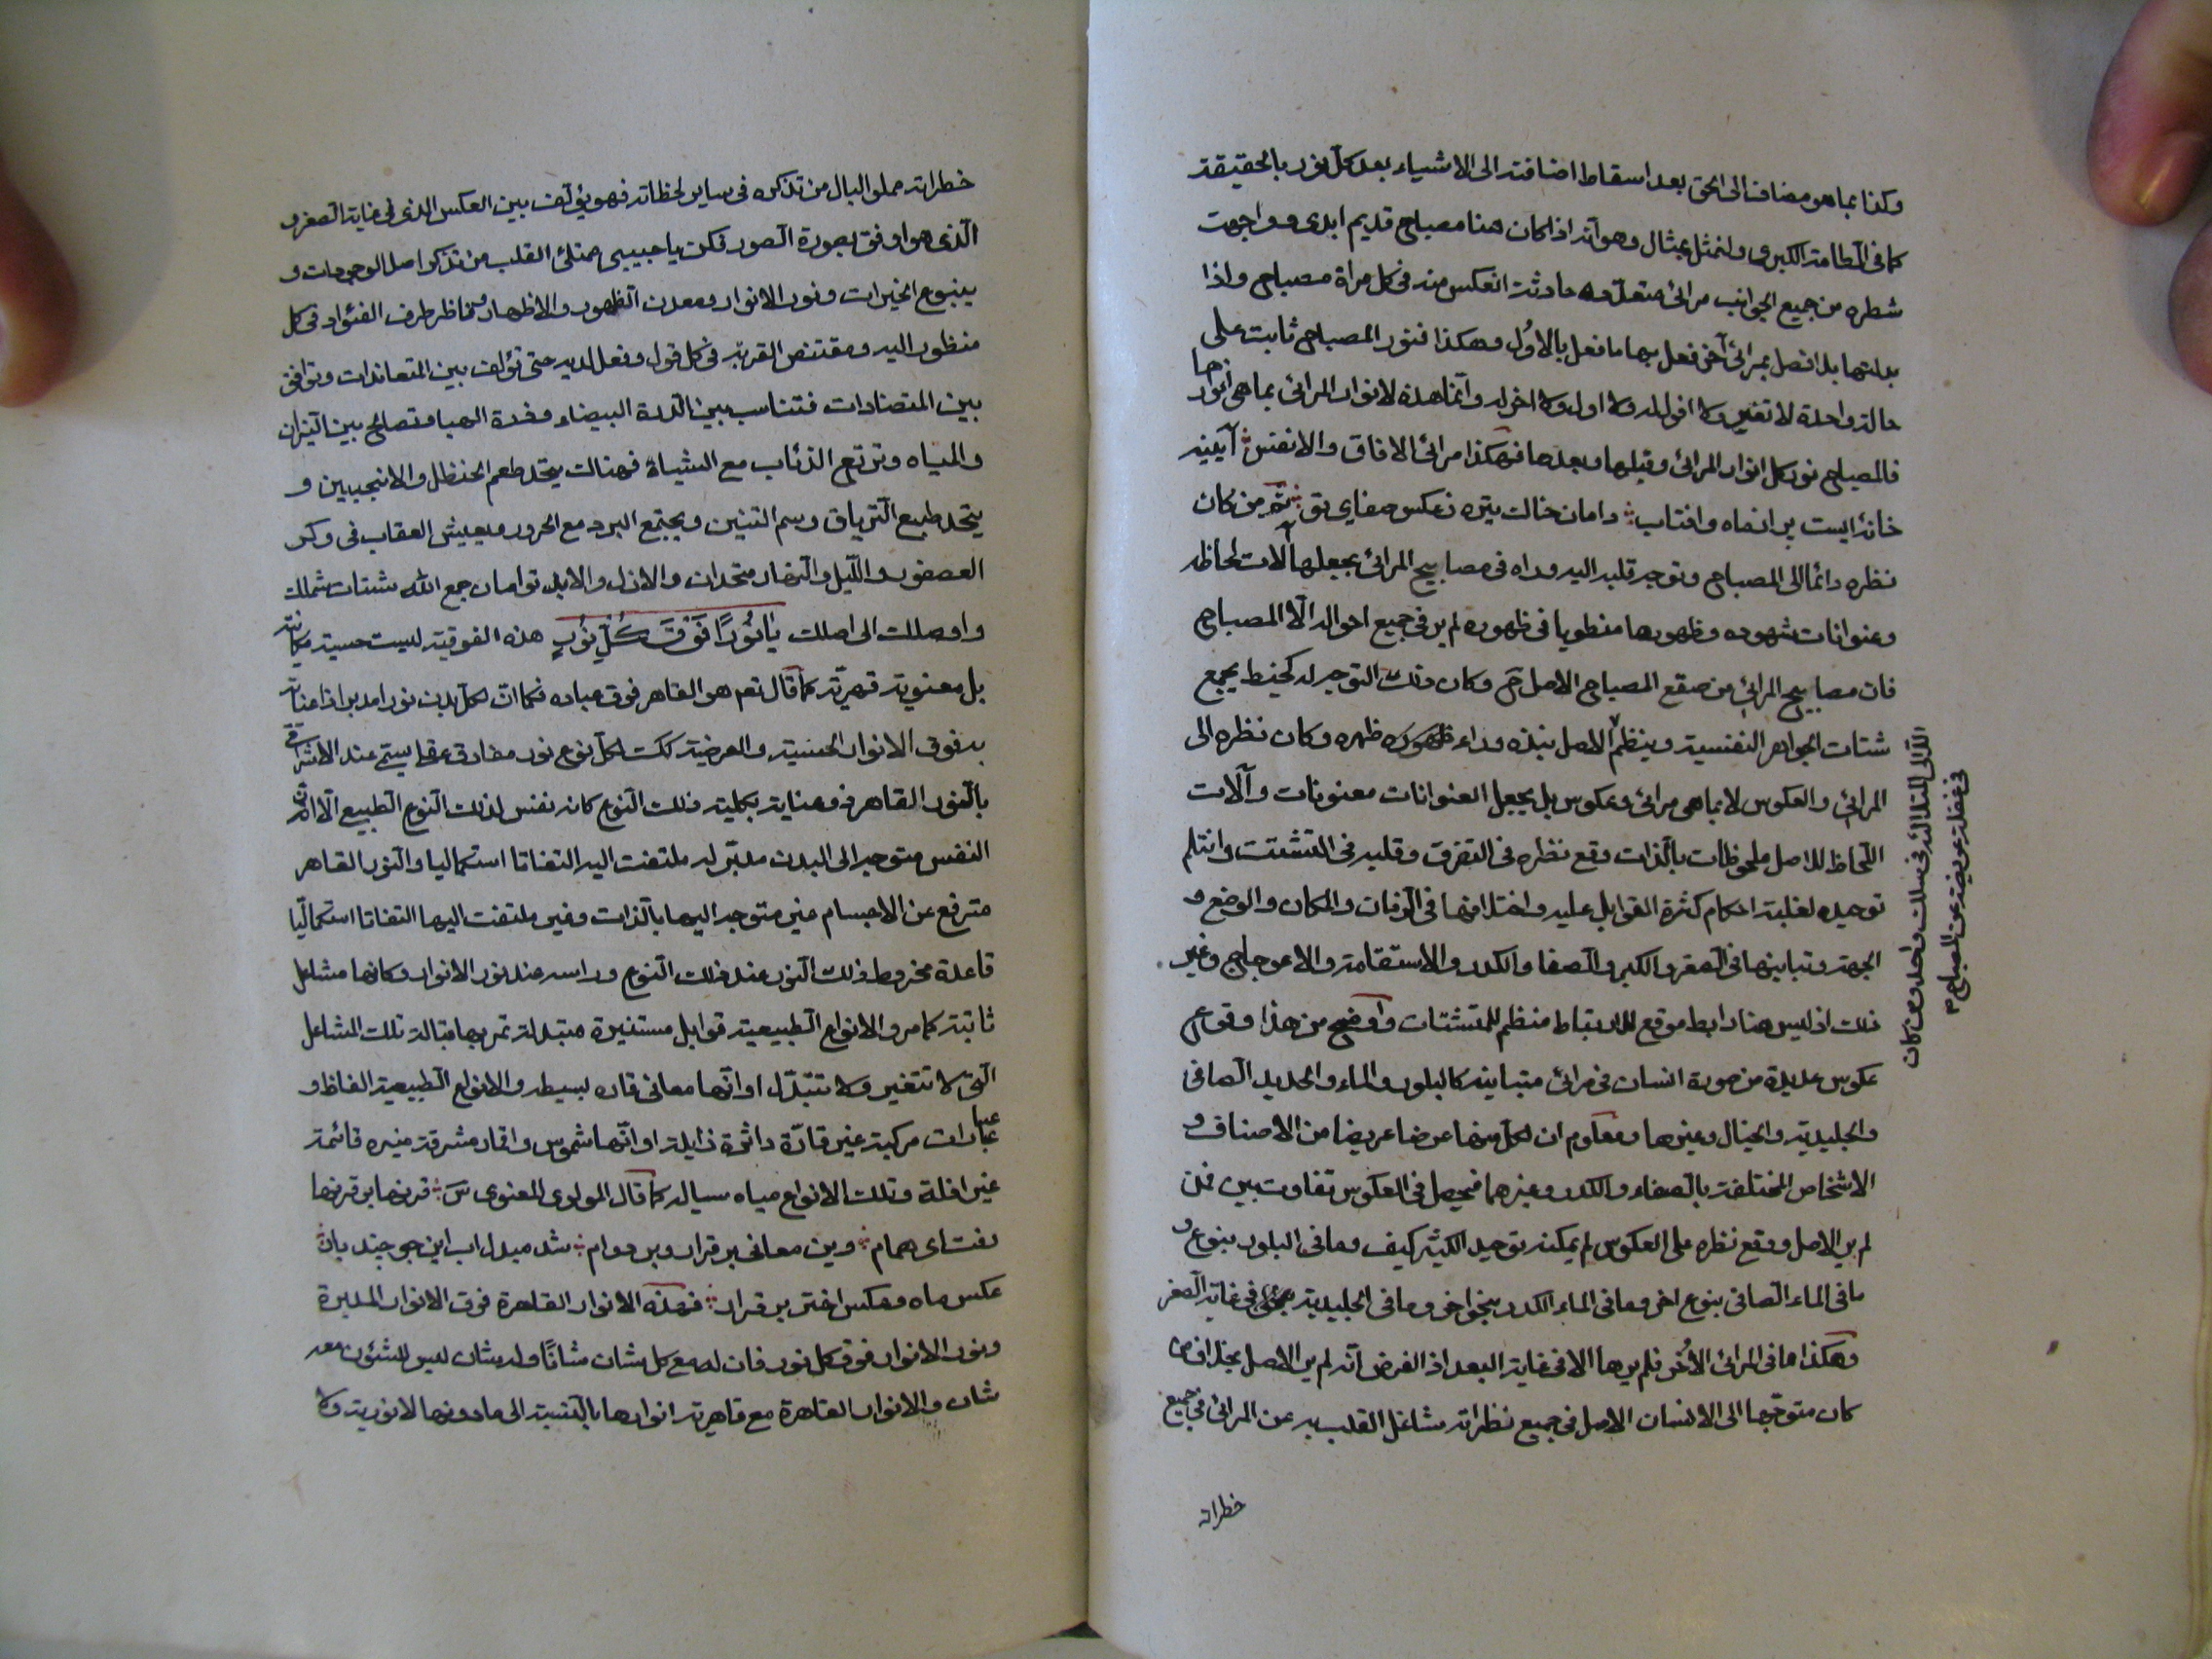 وكذا بما هو مضاف الى الحق بعد اسقاط اضافته الى الاشياء بعد كل نور بالحقيقة
كما فى الطامة الكبرى ولنمثل بمثال وهو انه اذا كان هنا مصباح قديم ابدى وواجهت
شطره من جميع الجوانب مرائى متعددة حادثة انعكس منه فى كل مراة مصباح واذا
بدلتها بدا فصل بمرائى آخر فعل بها ما فعل بالاول وهكذا فنور المصباح ثابت على
حالة واحدة لا تغير ولا افول له ولا اول ولا اخر له وانما هذه لانوار المرائى بما هى انوارها
فالمصباح نور كل انوار المرائى وقبلها وبعدها فهكذا مرائى الافاق والانفس آيينه
خانه ايست پر از ماه وافتاب دامان خاك تيره ز عكس صفاى تو ثم من كان
نظره دائما الى المصباح وتوجه قلبه اليه وراه فى مصابيح المرائى بجعلها آلات لحاظه
وعنوانات شهوده وظهورها منطويا فى ظهوره لم ير فى جميع احواله الا المصباح
فان مصابيح المرائى من صقع المصباح الاصل حتى وكان ذلك التوجه له كخيط يجمع
شتات الجواهر النفسية وينظم الاصل ينبذه وراء ظهره وكان نظره الى
اللآلى المتلألئة فى سلك واحد ومن كان
فى غفلة عريضة عن المصباح م
المرائى والعكوس لا بما هى مرائى وعكوس بل بجعل العنوانات معنونات وآلات
اللحاظ للاصل ملحوظات بالذات وقع نظره فى التفرق وقلبه فى التشتت وانثلم
توحيده لغلبة احكام كثرة القوابل عليه واختلافها فى الاوقات والمكان والوضع و
الجهة وتباينها فى الصغر والكبر والصفا والكدر والاستقامة والاعوجاج وغير
ذلك اذ ليس هنا رابط موقع للارتباط منظم للمتشتتات واوضح من هذا وقوع
عكوس عديدة من صورة انسان فى مرائى متباينة كالبلور والماء والحديد الصافى
والجليدية والخيال وغيرها ومعلوم ان لكل منها عرضا عريضا من الاصناف و
الاشخاص المختلفة بالصفاء والكدر وغيرهما فيحصل فى العكوس تفاوت بين فمن
لم ير الاصل ووقع نظره على العكوس لم يمكنه توحيد الكثير كيف وما فى البلور بنوع و
ما فى الماء الصافى بنوع اخر وما فى الماء الكدر بنحو اخر وما فى الجليدية فى غاية الصغر
وهكذا ما فى المرائى الاخر فلم يرها الا فى غاية البعد اذ الفرض انه لم ير الاصل بخلاف من
كان متوجها الى الانسان الاصل فى جميع نظراته شاغل القلب به عن المرائى فى جميع
خطراته
خطراته مملو البال من تذكره فى ساير لحظاته فهو يؤلف بين العكس الذى فى غاية الصغر و
الذى هو اوفق بصورة الصور فكن يا حبيبى ممتلئ القلب من تذكر اصل الوجودات و
ينبوع الخيرات ونور الانوار ومعدن الظهور والاظهار فناظر طرف الفؤاد فى كل
منظور اليه ومقتنص القربة فى كل قول وفعل لديه حتى تؤلف بين المتعاندات وتوافق
بين المتضادات فتناسب بين الدرة البيضاء وذرة الهبا وتصالح بين النيران
والمياه وترتع الذئاب مع الشياة فهنالك يتحد طعم الحنظل والانجبين و
يتحد طبع الترياق وسم التنين ويجتمع البرد مع الحرور ويعيش العقاب فى وكر
العصفور والليل والنهار متحدان والازل والابد توامان جمع الله شتات شملك
واوصلك الى اصلك يا نُورًا فَوْقَ كُلِّ نُورٍ هذه الفوقية ليست حسية مكانية
بل معنوية قهرية كما قال تعم هو القاهر فوق عباده فكما ان لكل بدن نور امدبرا ذا عناية
به فوق الانوار الحسية والعرضية كك لكل نوع نور مفارق عقلى يسمى عند الاشراقى
بالنور القاهر ذو عناية بكلية ذلك النوع كانه نفس لذلك النوع الطبيعى الا ان
النفس متوجه الى البدن مدبر له ملتفت اليه التفاتا استكماليا والنور القاهر
مترفع عن الاجسام غير متوجه اليها بالذات وغير ملتفت اليها التفاتا استكماليا
قاعدة مخروط ذلك النور عند ذلك النوع وراسه عند نور الانوار وكانها مشاعل
ثابتة كما مر والانواع الطبيعية قوابل مستنيرة متبدلة تمر بها قبالة تلك المشاعل
التى لا تتغير ولا تتبدل او انها معانى قارة بسيطة والانواع الطبيعية الفاظ و
عبارات مركبة غير قارة داثرة زايلة او انها شموس واقمار مشرقة منيره قائمة
غير افلة وتلك الانواع مياه سيالة كما قال المولوى المعنوى س قرنها بر قرنها
رفت اى همام وين معانى بر قرار وبر دوام شد مبدل اب اين جو چند بار
عكس ماه وعكس اختر بر قرار فهذه الانوار القاهرة فوق الانوار المدبرة
ونور الانوار فوق كل نور فان له مع كل شان شانًا وله شان ليس للشئون معه
شان والانوار القاهرة مع قاهرية انوارها بالنسبة الى ما دونها لا نورية ولا